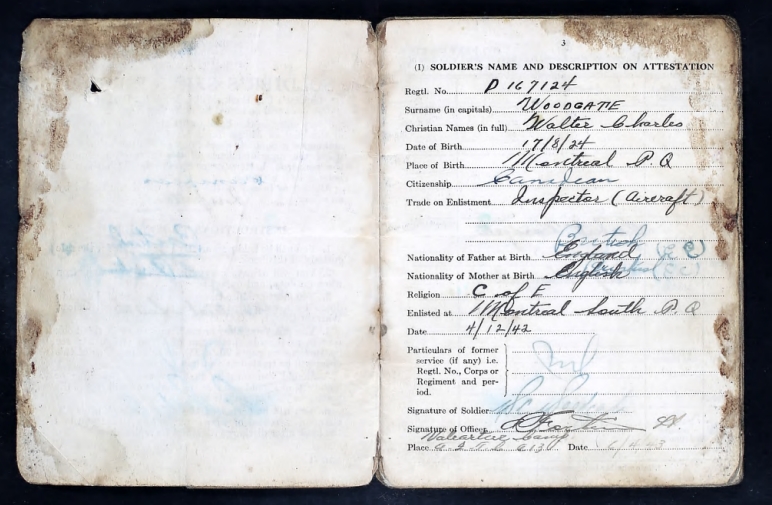 3
(I) SOLDIER'S NAME AND DESCRIPTION ON ATTESTATION
Regtl. No. D 167124
Surname (in capitals) WOODGATE
Christian Names (in full) Walter Charles
Date of Birth 17/8/24
Place of Birth Montreal P.Q
Citizenship Canadian
Trade on Enlistment Inspector (Aircraft)
British
Nationality of Father at Birth England
Nationality of Mother at Birth English
Religion C of E
Enlisted at Montreal South P.Q
Date 4/12/42
Particulars of former
service (if any) i.e.
Regtl. No., Corps or
Regiment and per-
iod.
Signature of Soldier
Signature of Officer
Valcartier Camp
Place Date